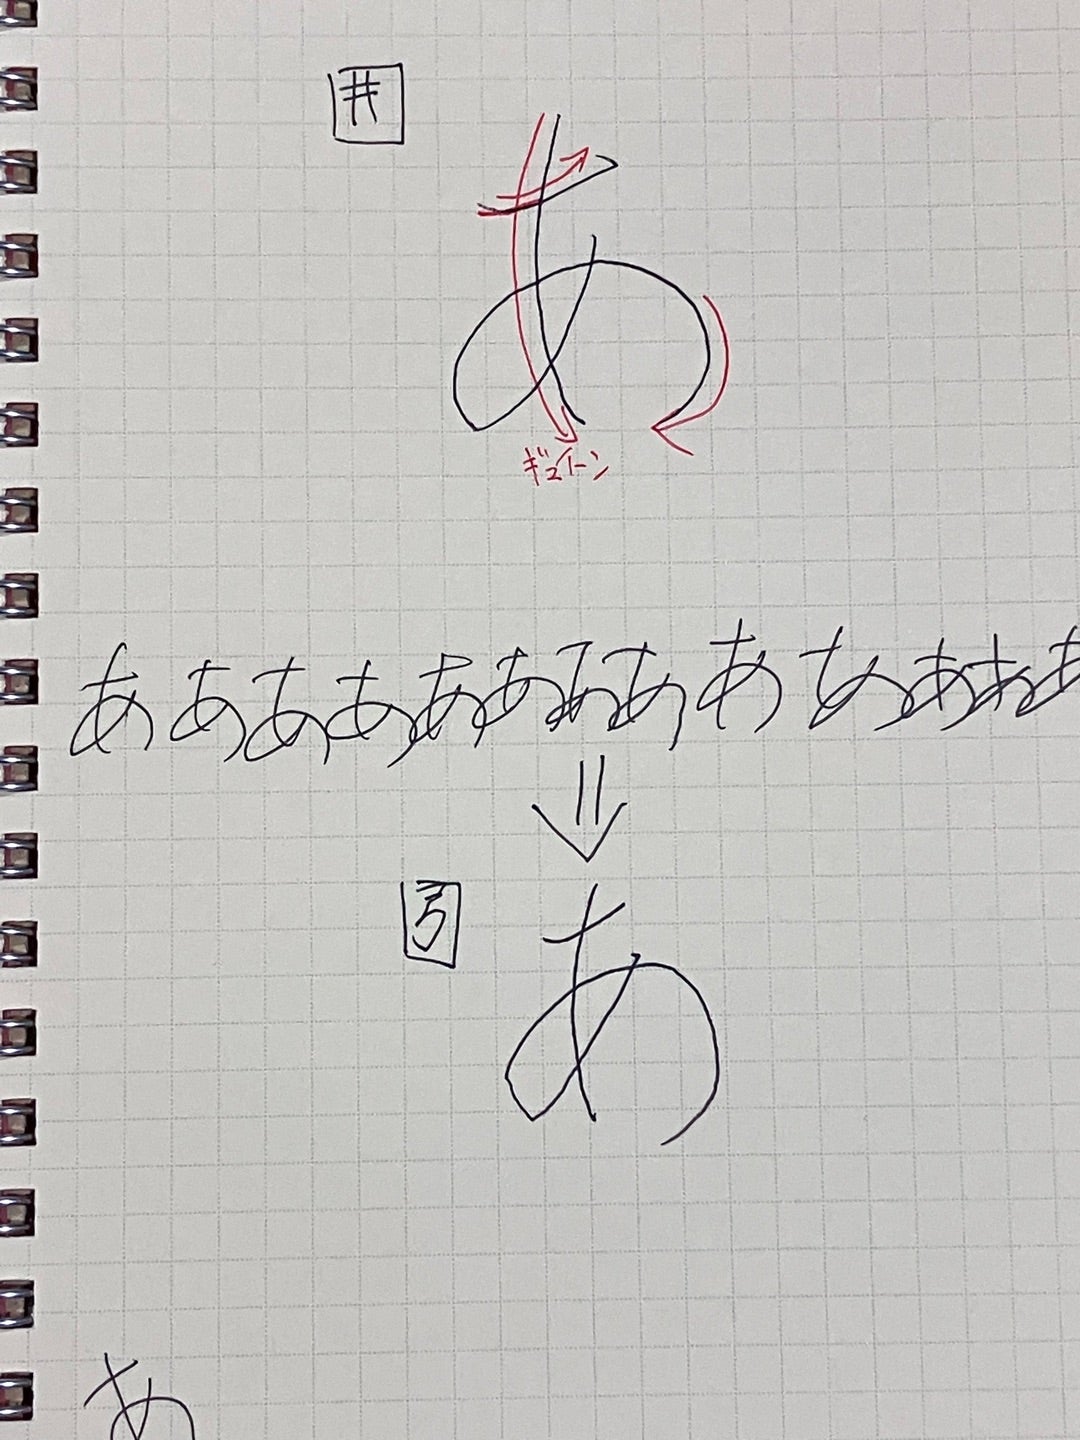 井
あ
ギュイーン
あああああああああああああ
弓
あ
あ